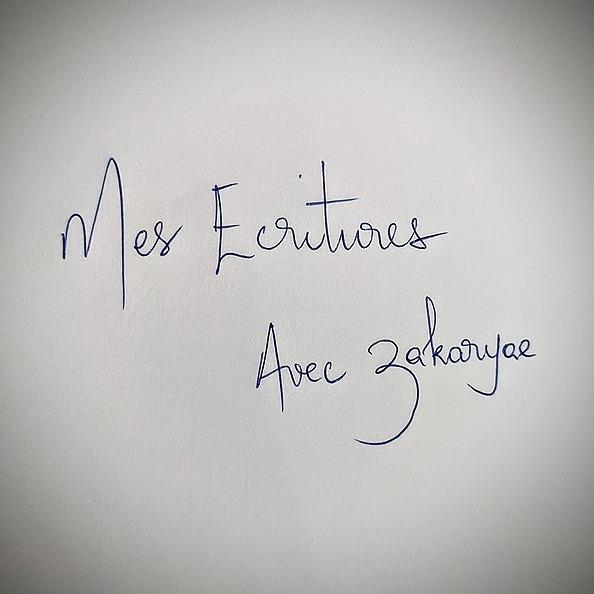 Mes Ecritures
Avec zakaryae